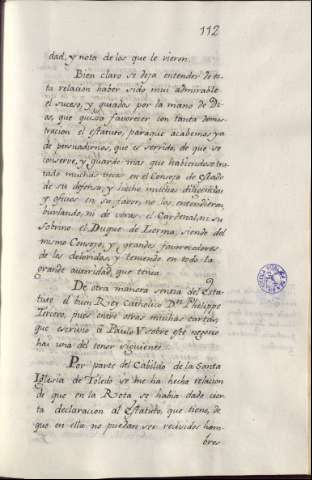 112
dad, y nota de los que le vieron.
Bien claro se deja entender de es-
ta relacion haber sido mui admirable
el suceso, y guiado por la mano de Di-
os, que quiso favorecer con tanta demos-
tracion el estatuto, paraque acabemos ya
de persuadirnos, que es servido, de que se
conserve, y guarde: mas que habiendose tra-
tado muchas veces en el Consejo de Estado
de su defensa, y hecho muchas diligencias
y oficios en su favor, no los entendieran
burlando, ni de veras el Cardenal, ni su
Sobrino el Duque de Lerma, siendo del
mismo Consejo, y grandes favorecedores
de las deheridas, y teniendo en todo la
grande autoridad, que tenia.
De otra manera sentia del Esta-
tuto el buen Rey Catholico Dn. Phelippe
Tercero, pues entre otras muchas cartas,
que escrivio a Paulo V sobre este negocio
hai una del tenor siguiente.
Por parte del Cabildo de la Santa
Iglesia de Toledo se me ha hecho relacion
de que en la Rota se habia dado cier-
ta declaracion al Estatuto, que tiene, de
que en ella no puedan ser recividos hom-
bres